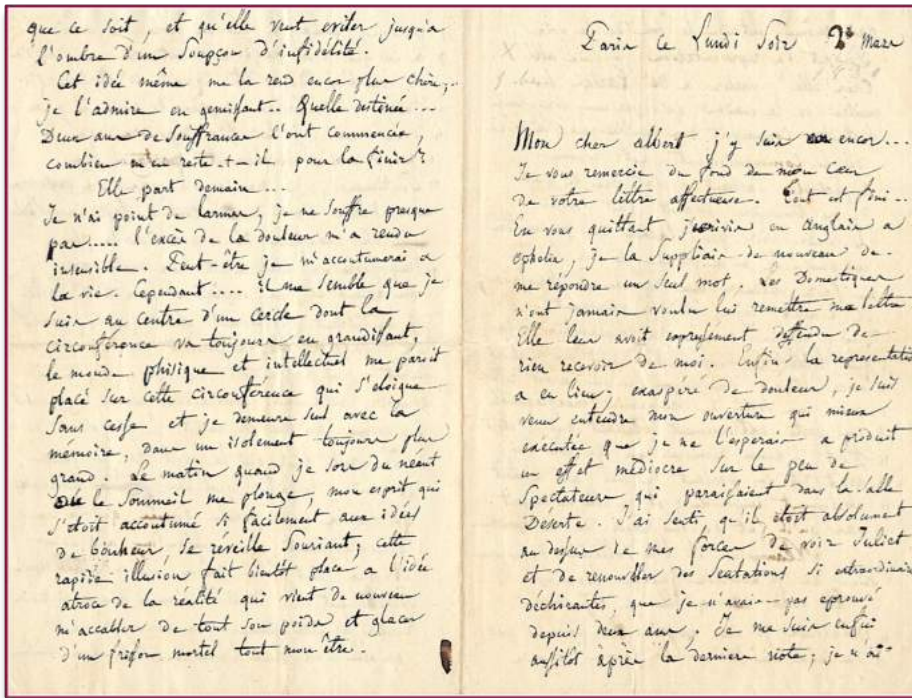 que ce soit, et qu'elle veut eviter jusqu'a
l'ombre d'un Soupçon d'infidélité.
Cet idée même me la rend encor plus chère;..
je l'admire en gemissant.. Quelle distinée...
Deux ans de Souffrances l'ont commencée,
combien m'en reste-t-il pour la finir?
Elle part demain...
Je n'ai point de larmes, je ne Souffre presque
pas..... l'excès de la douleur m'a rendu
insensible. Peut-être je m'accoutumerai a
la vie. Cependant.... il me Semble que je
Suis au centre d'un cercle dont la
circonférence va toujours en grandissant,
le monde phisique et intellectuel me paroit
placé sur cette circonférence qui s'eloigne
Sans cesse et je demeure Seul avec la
mémoire, dans un isolement toujours plus
grand. Le matin quand je sors du néant
où le Sommeil me plonge, mon esprit qui
s'étoit accoutumé si facilement aux idées
de bonheur, se réveille Souriant; cette
rapide illusion fait bientôt place a l'idée
atroce de la réalité qui vient de nouveau
m'accabler de tout Son poids et glacer
d'un frisson mortel tout mon être.
Paris ce Lundi Soir 2 Mars
Mon cher albert j'y Suis encor...
Je vous remercie du fond de mon cœur
de votre lettre affectueuse. Tout est fini..
En vous quittant j'ecrivis en Anglais a
Ophelia, je la Suppliais de nouveau de
me répondre un Seul mot. Les Domestiques
n'ont jamais voulu lui remettre ma lettre
Elle leur avoit expressément deffendu de
rien recevoir de moi. Enfin la représentation
a eu lieu; exaspéré de douleur, je suis
venu entendre mon ouverture qui mieux
exécutée que je ne l'esperais a produit
un effet médiocre Sur le peu de
Spectateurs qui paraissaient dans la Salle
Déserte. J'ai Senti qu'il étoit absolument
au dessus de mes forces de voir Juliet
et de renouveller des Sensations Si extraordinaire
déchirantes, que je n'avais pas eprouvé
depuis deux ans. Je me Suis enfui
aussitôt après la derniere note; je n'ai